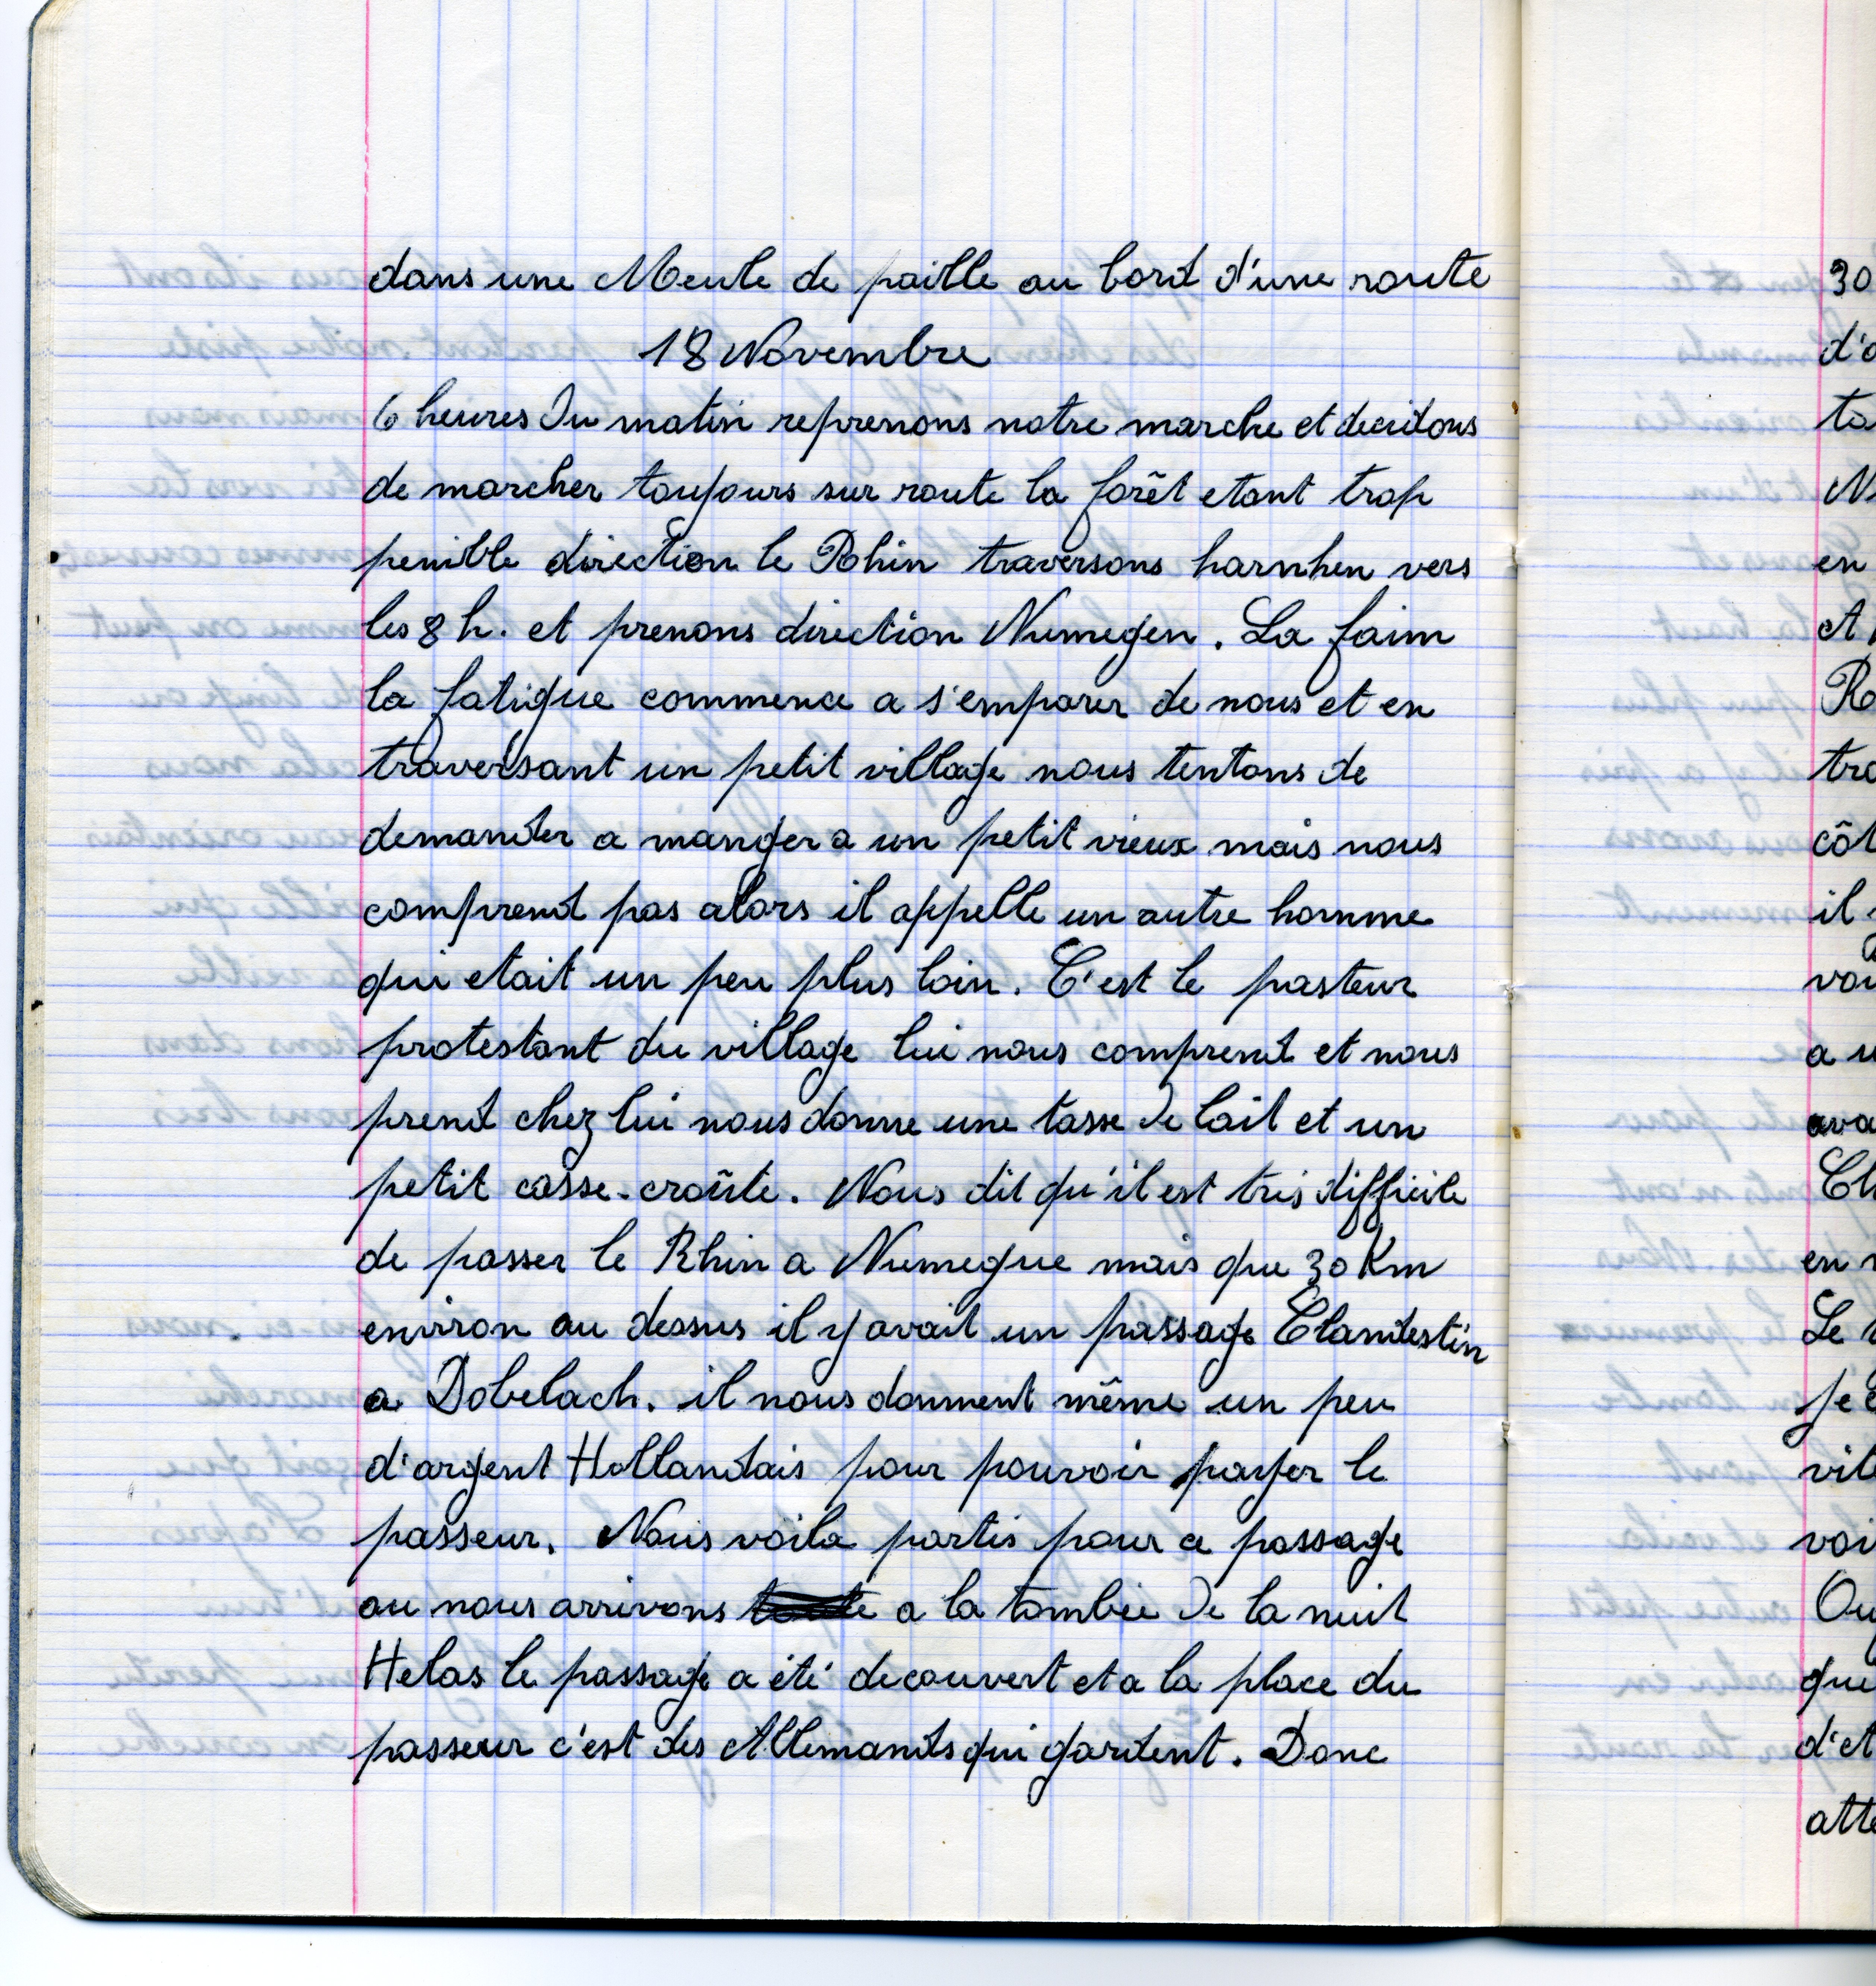 dans une Meule de paille au bord d'une route
18 Novembre
6 heures du matin reprenons notre marche et decidons
de marcher toujours sur route la forêt etant trop
penible direction le Rhin traversons harnhen vers
les 8 h. et prenons direction Numegen. La faim
la fatigue commence a s'emparer de nous et en
traversant un petit village nous tentons de
demander a manger a un petit vieux mais nous
comprend pas alors il appelle un autre homme
qui etait un peu plus loin. C'est le pasteur
protestant du village lui nous comprend et nous
prend chez lui nous donne une tasse de lait et un
petit casse-croûte. Nous dit qu'il est tris difficile
de passer le Rhin a Numegue mais que 30 Km
environ au dessus il y avait un passage Clandestin
a Dobelach. il nous donnent même un peu
d'argent Hollandais pour pouvoir payer le
passeur. Nous voila partis pour ce passage
ou nous arrivons a la tombée de la nuit
Helas le passage a été decouvert et a la place du
passeur c'est des Allemands qui gardent. Donc
30
d'a
to
N
en
et
Ro
tra
côt
il
vou
a u
ava
Cl
en
Le
je
vil
voi
Ou
que
d'et
atte